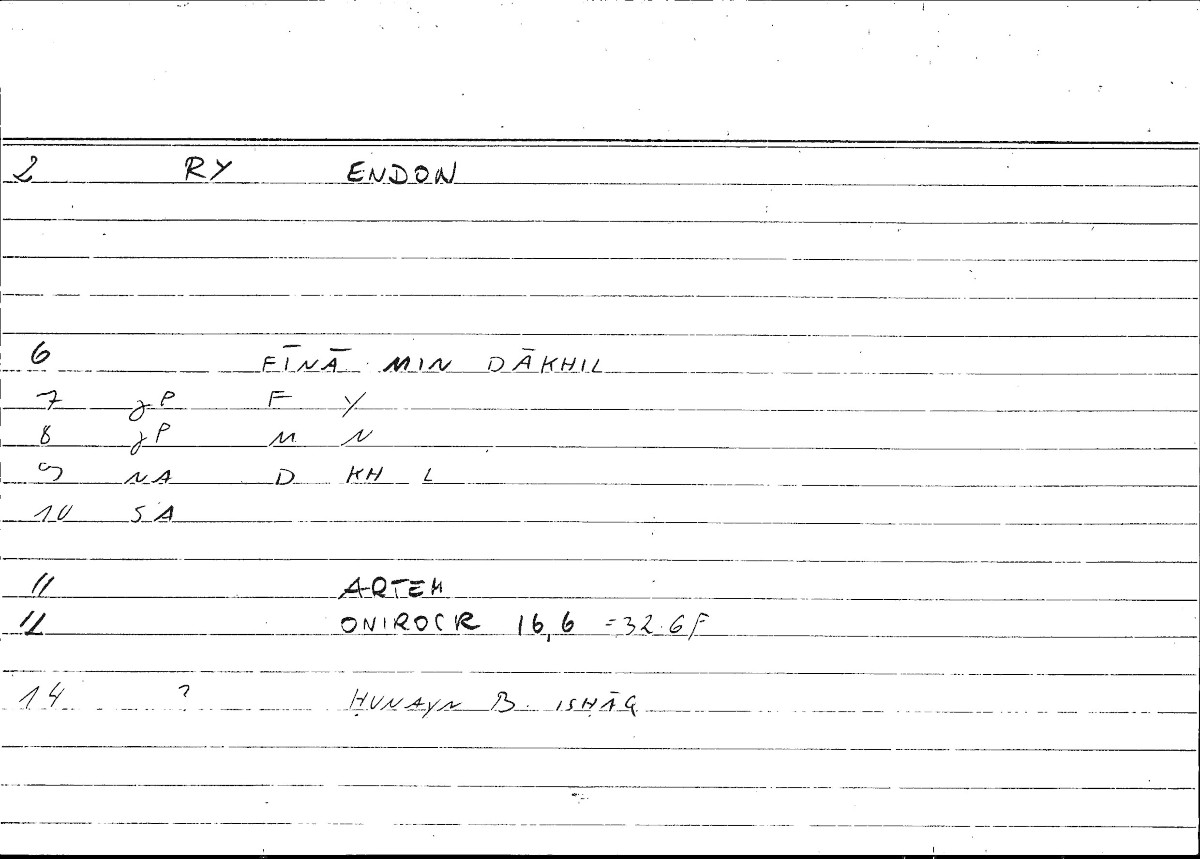 2 RY ENDON
6 FĪNĀ MIN DĀKHIL
7 gP F Y
8 gP M N
9 NA D KH L
10 SA
11 ARTEM
12 ONIROCR 16,6 =32.6F
14 ? ḤUNAYN B. ISḤĀQ